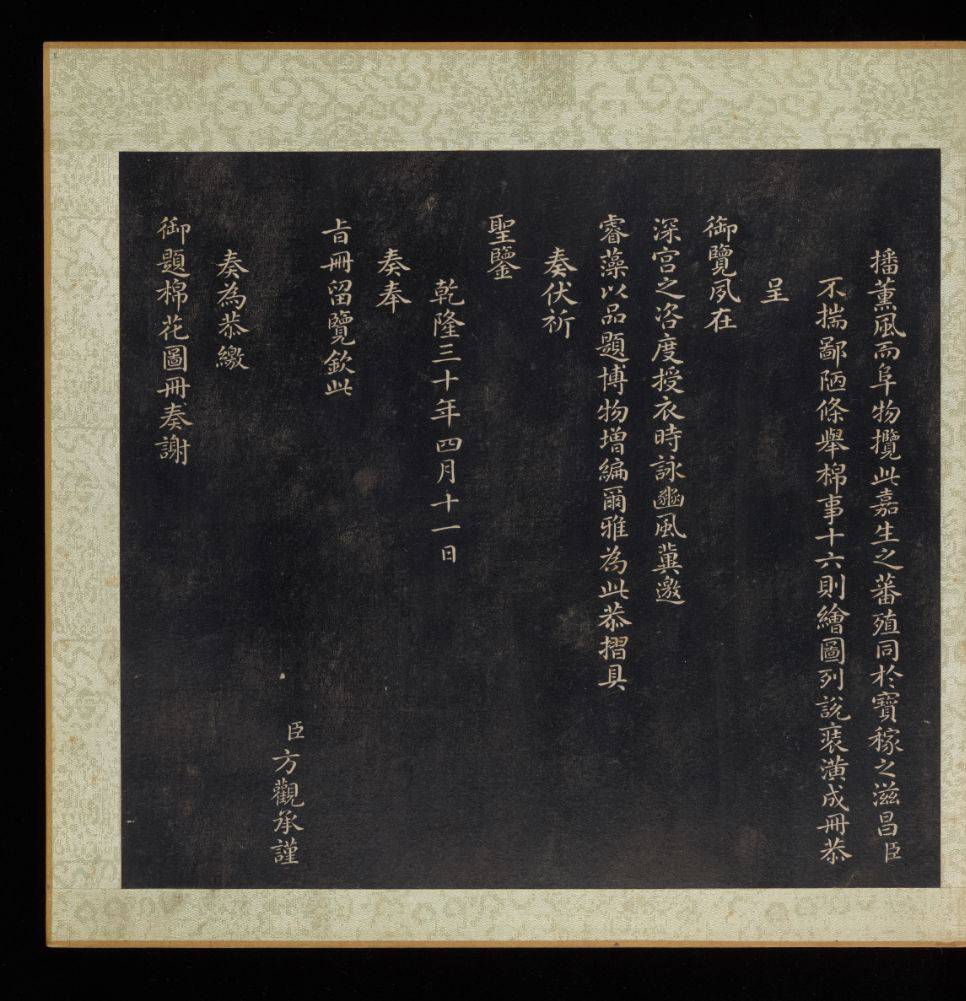 播薰風而阜物攬此嘉生之蕃殖同於寶稼之滋昌臣
不揣鄙陋條舉棉事十六則繪圖列說裝潢成冊恭
呈
御覽夙在
深宮之咨度授衣時詠豳風冀邀
睿藻以品題博物增編爾雅為此恭摺具
奏伏祈
聖鑒
乾隆三十年四月十一日
奏奉
旨冊留覽欽此
臣方觀承謹
奏為恭繳
御題棉花圖冊奏謝